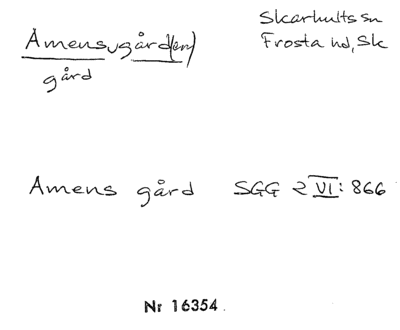 Amens gård(en)
gård
Skarhults sn
Frosta hd, Sk
Amens gård SGG 2 VI: 866
Nr 16354.